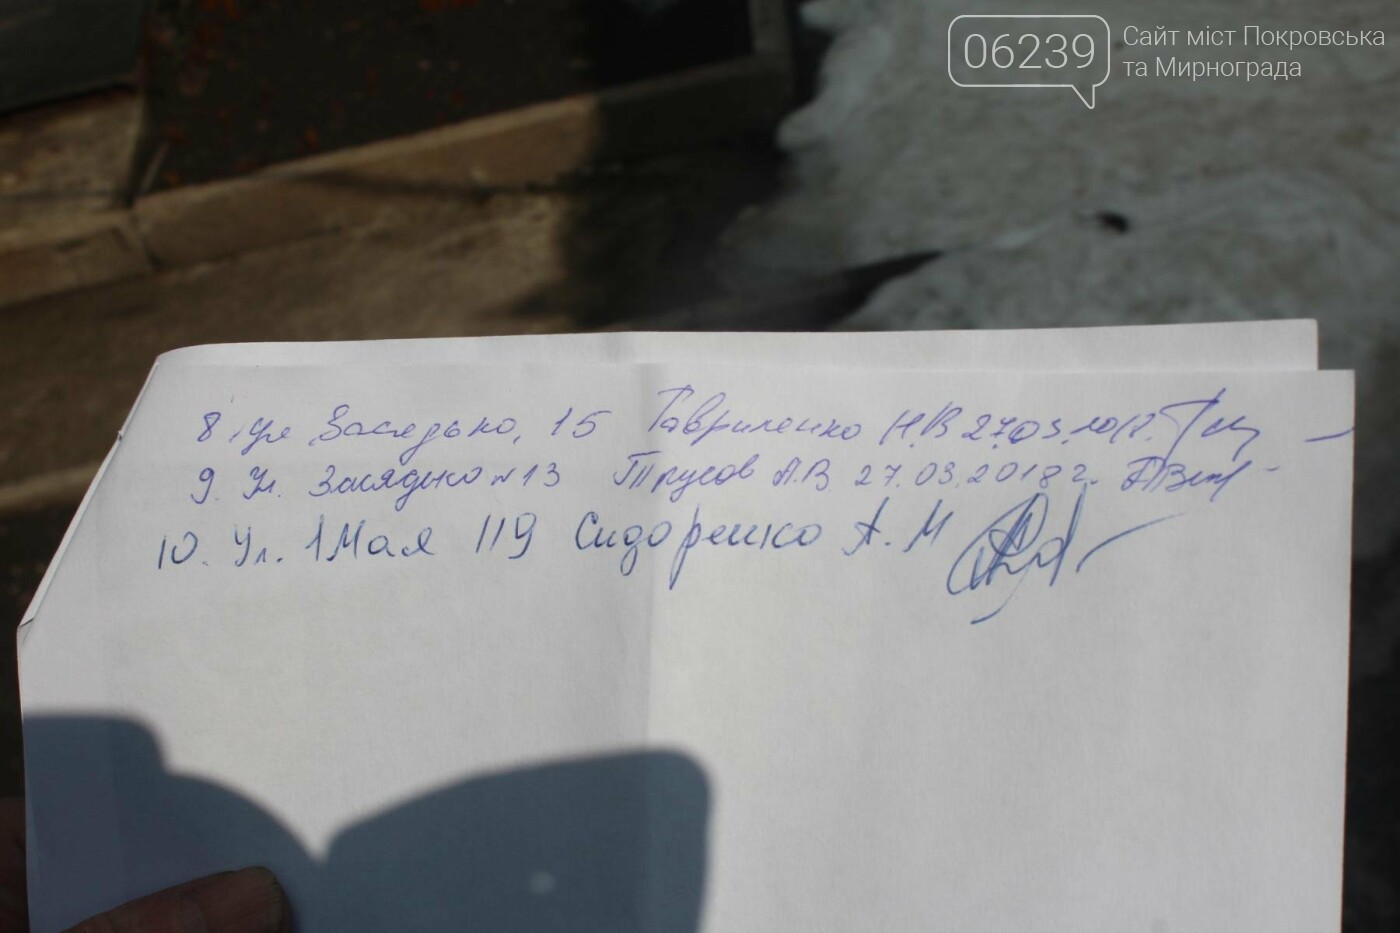 06239
Сайт міст Покровська
та Мирнограда
8. ул Засядько, 15 Гавриленко Н.В 27.03.2018г.
9. Ул. Засядько №13 Трусов А.В. 27.03.2018г.
10. Ул. 1 Мая 119 Сидоренко А.М